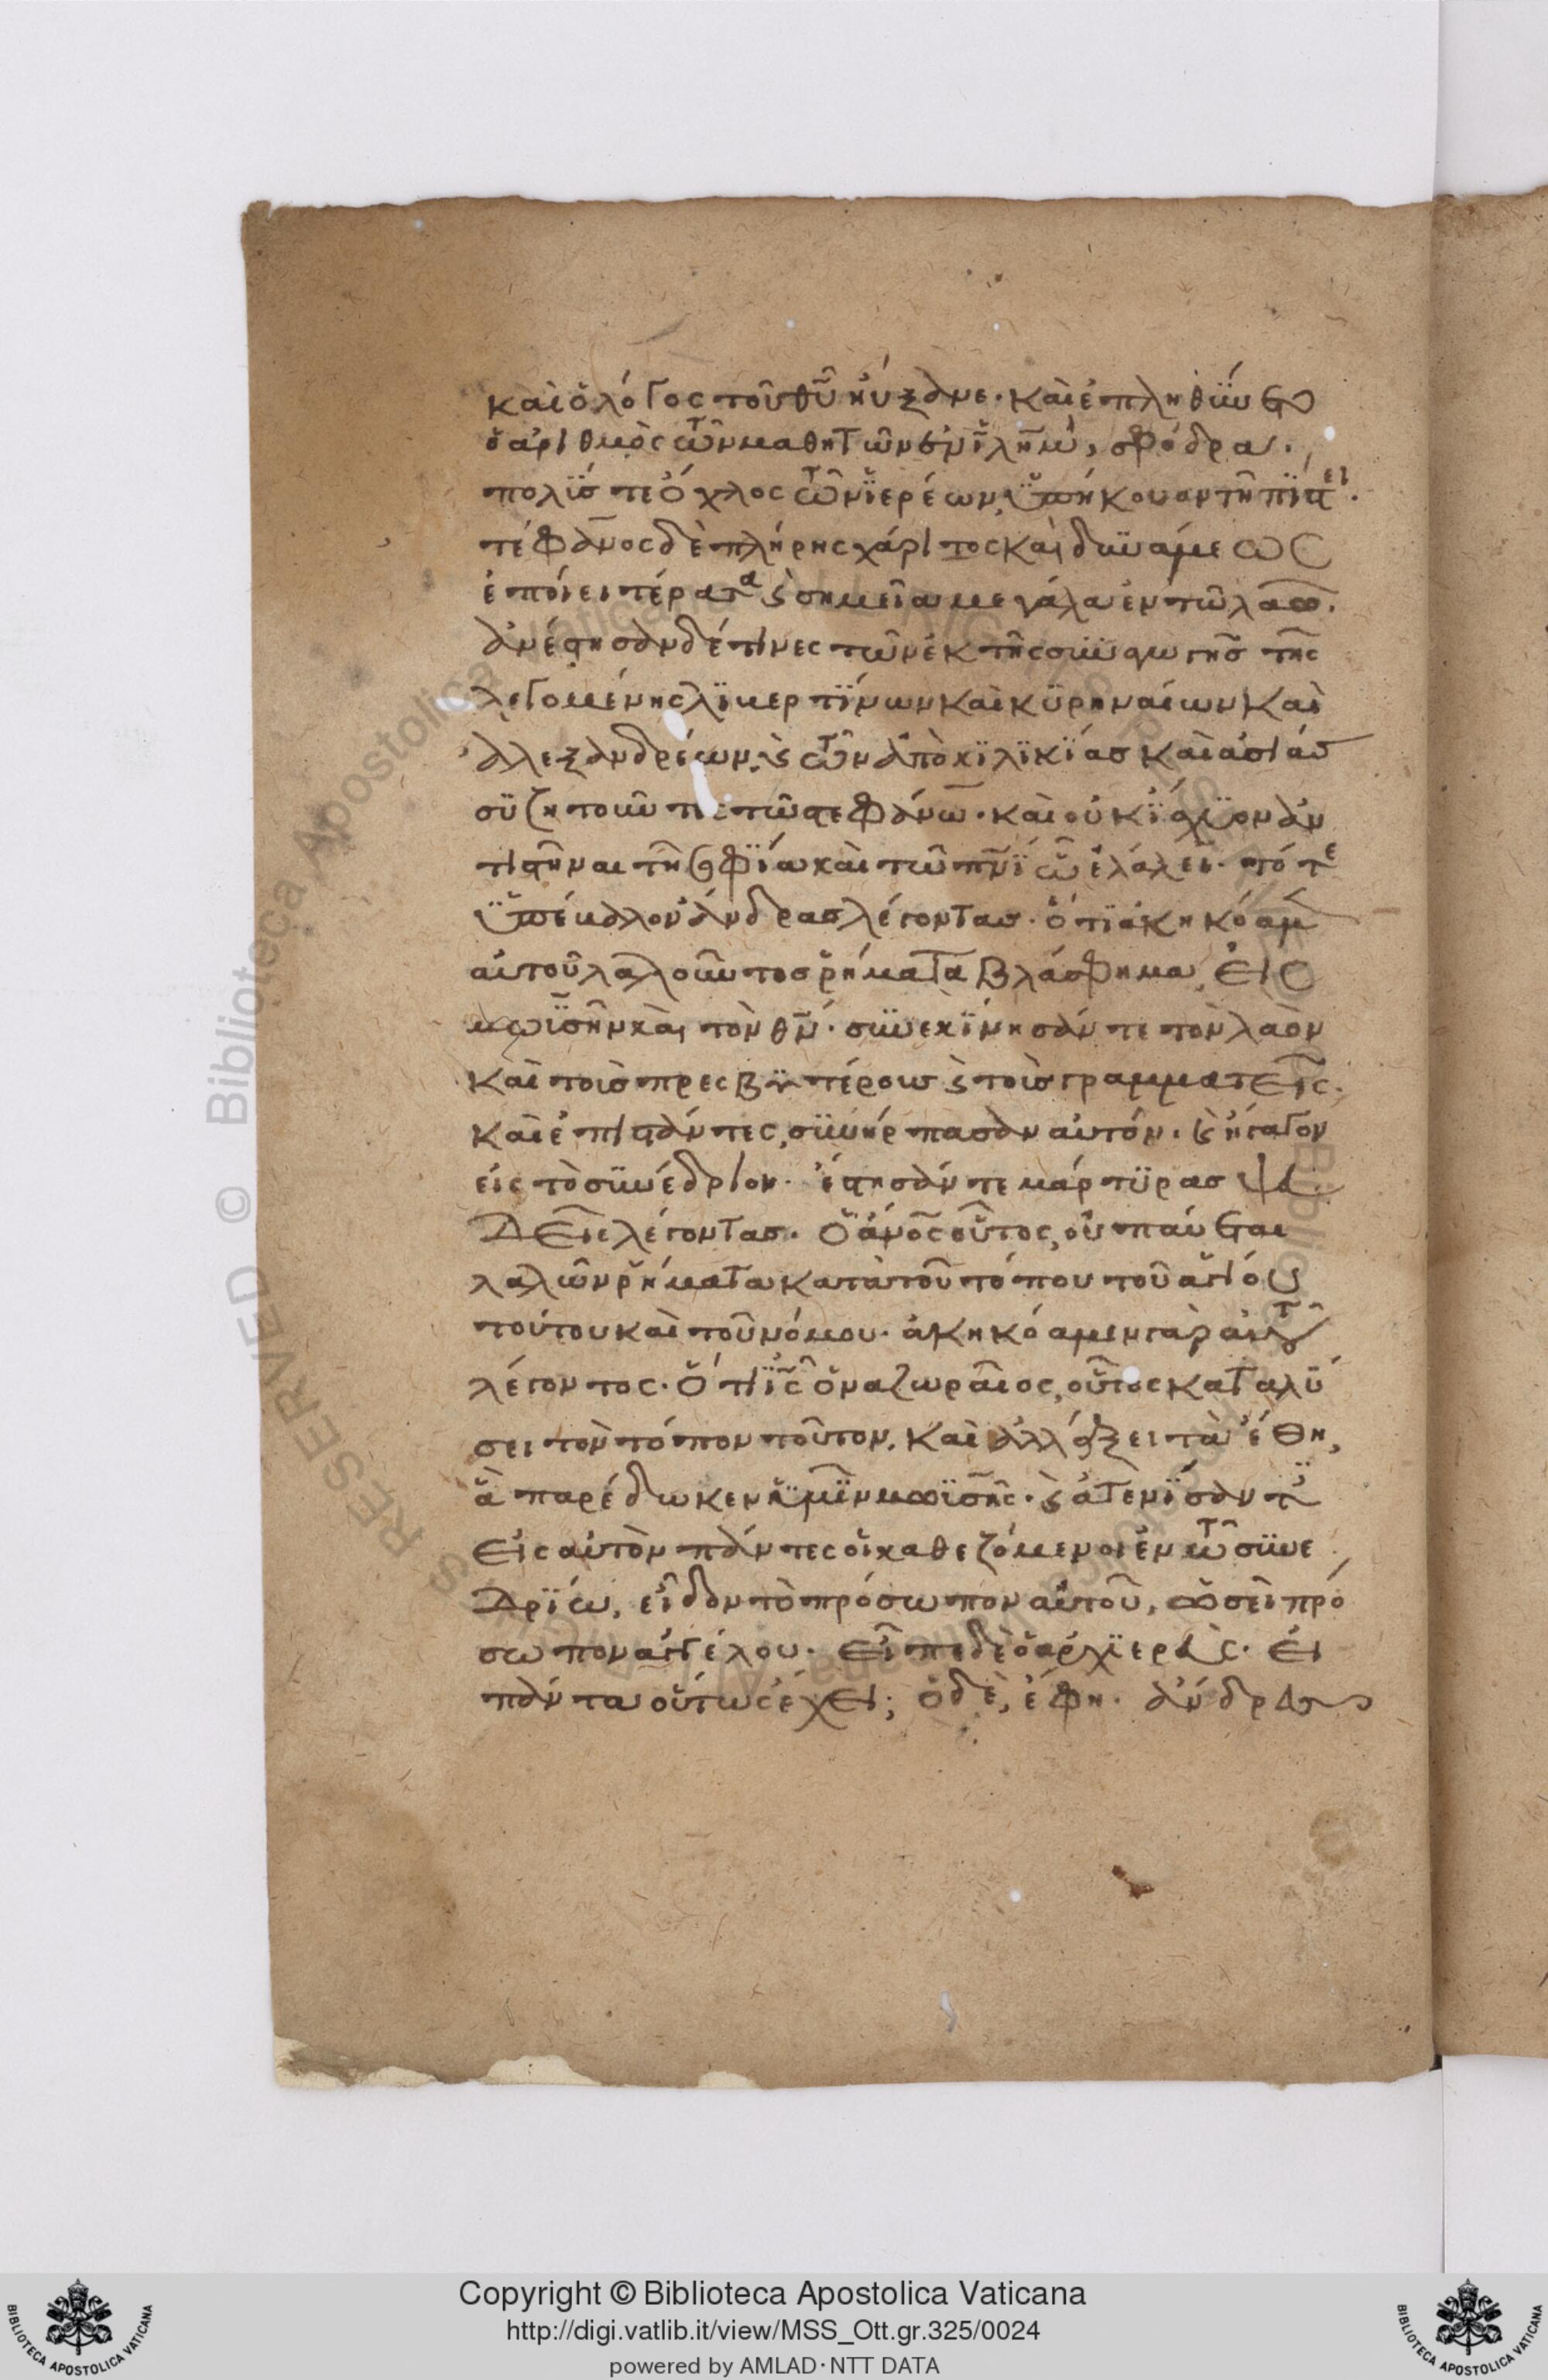 καὶ ὁ λόγος τοῦ θῦ ηὔξανε· καὶ ἐπληθύνετο
ὁ ἀριθμὸς τῶν μαθητῶν ἐν ϊλῆμ, σφόδρα.
πολΰσ τε ὄχλος τῶν ϊερέων, ϋπήκουαν τῆ πίστει.
τέφανος δὲ πλήρης χάριτος καὶ δυνάμεως
ἐποίει τέρατα ϗ σημεῖα μεγάλα ἐν τῶ λαῶ.
ἀνέστησαν δέ τινες τῶν ἐκ τῆς συναγωγῆσ τῆς
λεγομένης λϊμερτΐνων καὶ κϋρηναίων καὶ
ἀλεξανδρέων, ϗ τῶν ἀπὸ κϊλϊκΐασ καὶ ἀσίασ
συζητοῦντες τῶ στεφάνω· καὶ οὐκ ΐσχϋον ἀν
τιστῆναι τῆ σοφΐα καὶ τῶ πνϊ ὧ ἐλάλει· τότε
ϋπέμαλον ἄνδρασ λέγοντασ· ὅτϊ ἀκηκόαμ
αὐτοῦ λαλοῦντοσ ῥήματα βλάσφημα, εἰς
μωϋσῆν καὶ τὸν θν· συνεκΐνησάν τε τὸν λαὸν
καὶ τοὺσ πρεσβυτέρουσ ϗ τοὺσ γραμματεῖς·
καὶ ἐπιστάντες, συνήρπασαν αὐτόν· ϗ ἤγαγον
εἰς τὸ συνέδριον· ἔστησάν τε μάρτϋρασ ψευ
δεῖς λέγοντασ· ὁ ἀνος οὗτος, οὐ παύεται
λαλῶν ῥήματα κατὰ τοῦ τόπου τοῦ ἁγίου
τούτου καὶ τοῦ νόμου· ἀκηκόαμεν γὰρ αὐτοῦ
λέγοντος· ὅτι ϊς ὁ ναζωραῖος, οὗτος καταλΰ
σει τὸν τόπον τοῦτον, καὶ ἀλλάξει τὰ ἔθη,
ἃ παρέδωκεν ἡμῖν μωϋσῆς· ϗ ἀτενΐσαντ
εἰς αὐτὸν πάντες οἱ καθεζόμενοι ἐν τῶ συνε
δρΐω, εἶδον τὸ πρόσωπον αὐτοῦ, ὡσεὶ πρό
σωπον ἀγγέλου· εἶπε δὲ ὁ ἀρχϊερεὺς· εἰ
πάντα οὕτως ἔχει; ὁ δὲ, ἔφη· ἄνδρες
Copyright © Biblioteca Apostolica Vaticana
http://digi.vatlib.it/view/MSS_Ott.gr.325/0024
powered by AMLAD·NTT DATA